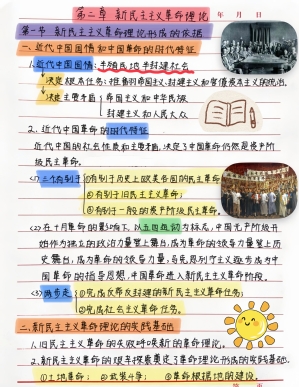 第二章 新民主主义革命理论
年 月 日
第一节 新民主主义革命理论形成的依据
一、近代中国国情和中国革命的时代特征
1.近代中国国情：半殖民地半封建社会
决定根本任务：推翻帝国主义、封建主义和官僚资本主义的统治
决定主要矛盾 帝国主义和中华民族
封建主义和人民大众
2.近代中国革命的时代特征
近代中国的社会性质和主要矛盾，决定了中国革命仍然是资产阶
级民主革命。
(1)三个有别于 ①有别于历史上欧美各国的民主革命
②有别于旧民主主义革命；
③有别于一般的资产阶级民主革命。
(2)在十月革命的影响下，以五四运动为标志，中国无产阶级开
始作为独立的政治力量登上舞台，成为革命的领导力量登上历
史舞台，成为革命的领导力量，马克思列宁主义逐步成为中
国革命的指导思想，中国革命进入新民主主义革命阶段。
(3)两步走：①完成反帝反封建的新民主主义革命任务；
②完成社会主义革命任务。
二、新民主主义革命理论的实践基础
1.旧民主主义革命的失败呼唤新的革命理论。
2.新民主主义革命的艰辛探索奠定了革命理论形成的实践基础。
①土地革命；②武装斗争；③革命根据地的建设。